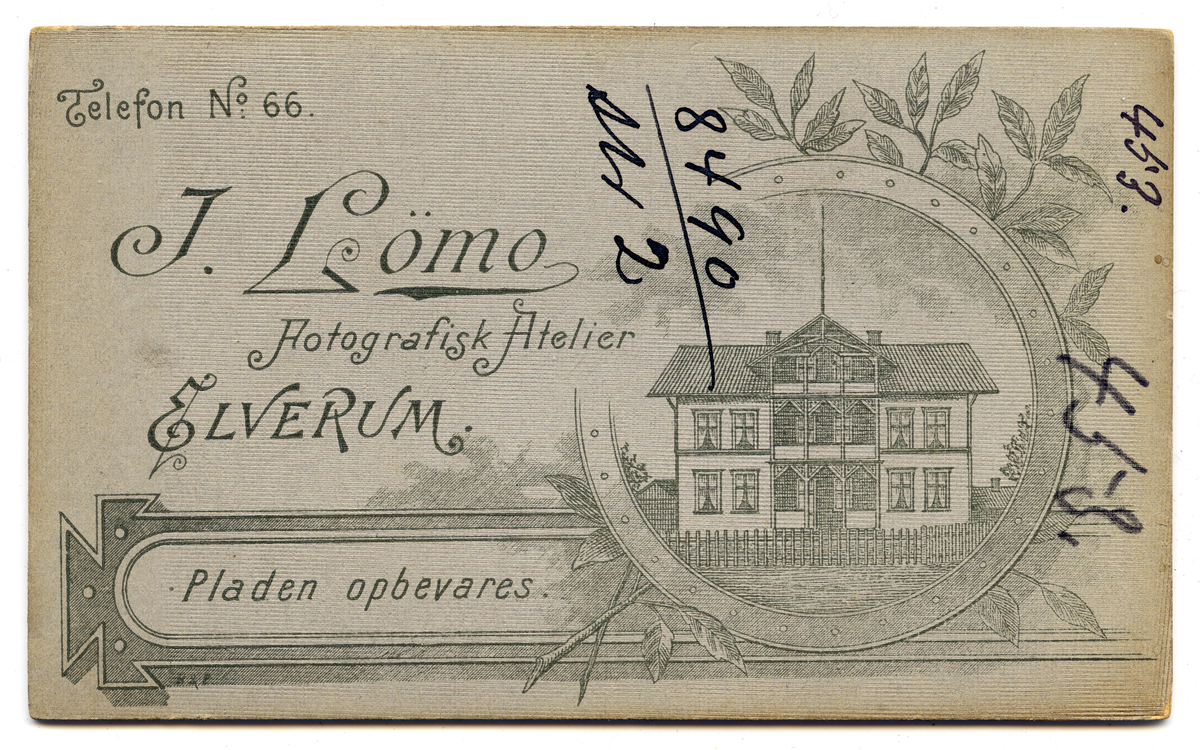 Telefon No. 66.
J. Lömo
Fotografisk Atelier
ELVERUM.
Pladen opbevares.
8490
2
453.